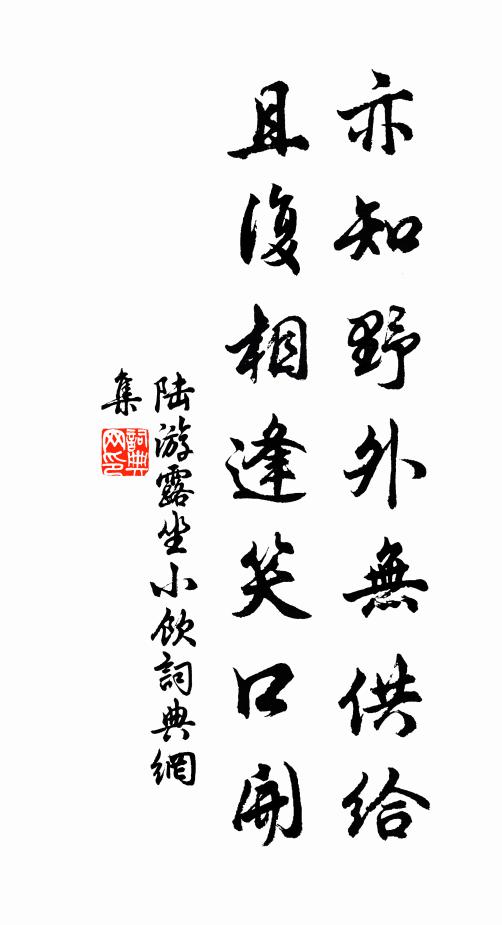 亦知野外無供給
且復相逢笑口開
陆游露坐小飲詞典網
集
詞典网印